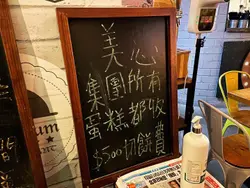 美心
集團所有
蛋糕都收
$500切餅費
um